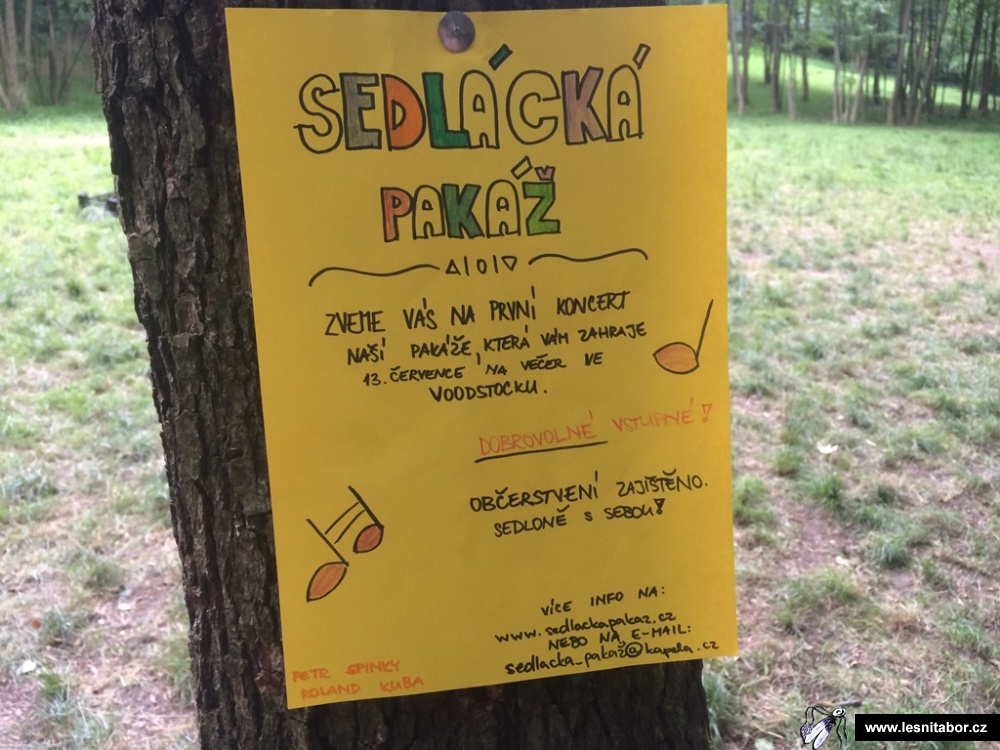 SEDLÁCKÁ
PAKÁŽ
ZVEME VÁS NA PRVNÍ KONCERT
NAŠÍ PAKÁŽE, KTERÁ VÁM ZAHRAJE
13. ČERVENCE NA VEČER VE
VOODSTOCKU.
DOBROVOLNÉ VSTUPNÉ!
OBČERSTVENÍ ZAJIŠTĚNO.
SEDLONĚ S SEBOU!
VÍCE INFO NA:
www.sedlackapakaz.cz
NEBO NA E-MAIL:
sedlacka_pakaž@kapela.cz
PETR SPINKY
ROLAND KUBA
www.lesnitabor.cz